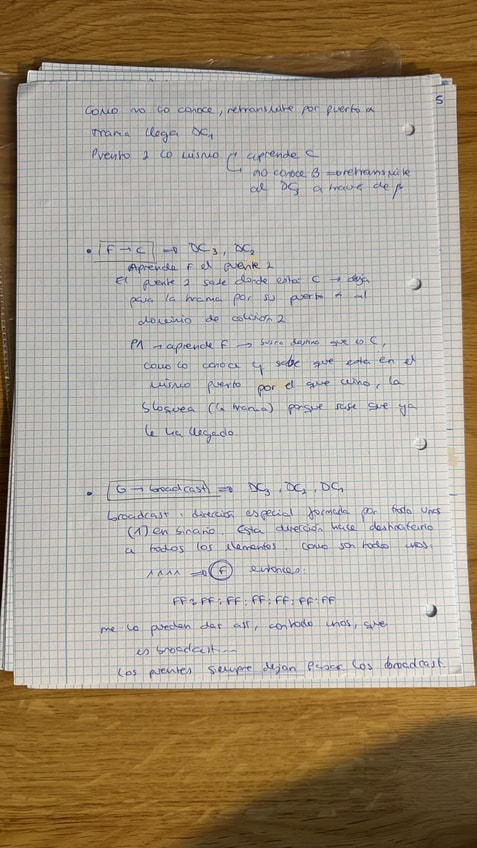 5
Como no lo conoce, retransmite por puerto α
Trama llega DC1
Puento 2 lo mismo { aprende C
no conoce B → retransmite
al DC3 a trave de β
• F → C ⇒ DC3, DC2
Aprende F el puente 2
El puente 2 sabe donde esta C → deja
pasa la trama por su puerto α al
dominio de colision 2
P1 → aprende F → busca destino que es C,
como lo conoce y sabe que esta en el
mismo puerto por el que vino, la
bloquea (la trama) porque sabe que ya
le ha llegado.
• G → broadcast ⇒ DC3, DC2, DC1
broadcast: dirección especial formada por todo unos
(1) en binario. Esta dirección hace destinatario
a todos los elementos. Como son todo unos:
1111 ⇒ F entonces:
FF:FF:FF:FF:FF:FF:FF
me lo pueden dar asi, con todo unos, que
es broadcast...
Los puentes siempre dejan pasar los broadcast